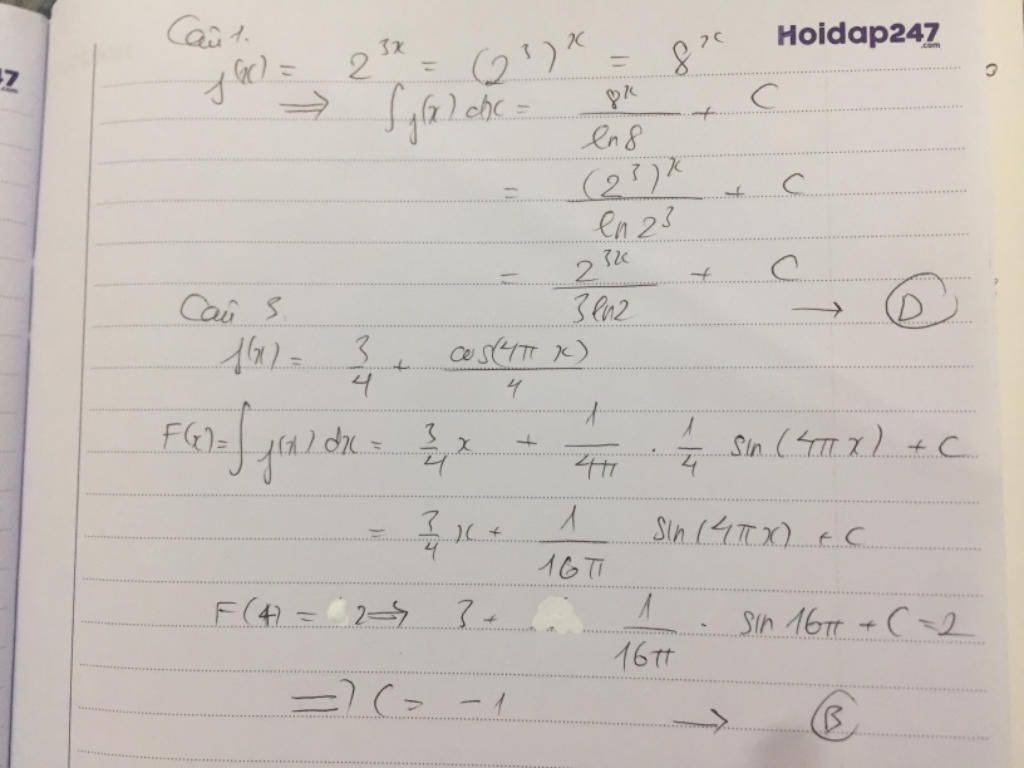 Câu 1.
Hoidap247
.com
f(x) = 2^{3x} = (2^3)^x = 8^x
⇒ ∫f(x) dx = 8^x/ln8 + C
= (2^3)^x/ln2^3 + C
= 2^{3x}/3ln2 + C → D
Câu 3.
f(x) = 3/4 + cos(4π x)/4
F(x) = ∫f(x) dx = 3/4 x + 1/4π . 1/4 sin(4π x) + C
= 3/4 x + 1/16π sin(4πx) + C
F(4) = 2 ⇒ 3 + 1/16π . sin 16π + C = 2
⇒ C = -1 → B